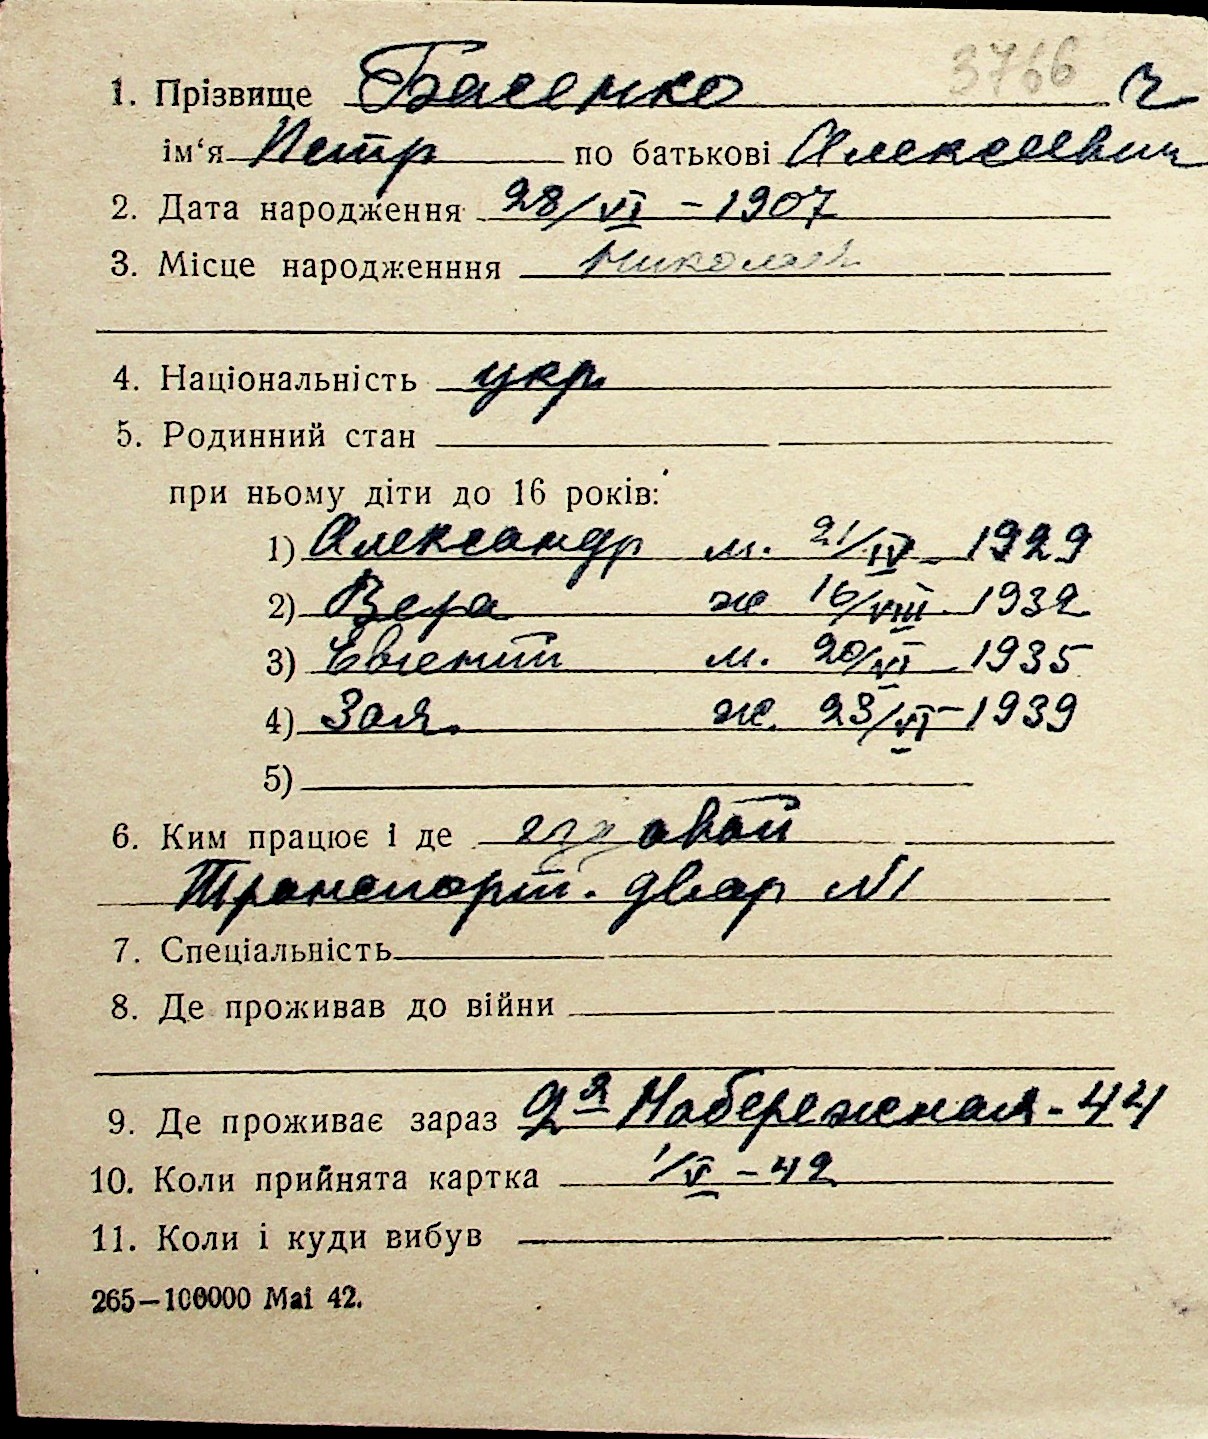 3766
1. Прізвище Басенко
ім'я Петр по батькові Алексеевич
2. Дата народження 28/VI – 1907
3. Місце народженння Николаев
4. Національність укр.
5. Родинний стан
при ньому діти до 16 років:
1) Александр м. 21/IV – 1929
2) Вера ж 16/VIII – 1932
3) Евгений м. 20/VI – 1935
4) Зоя. ж. 23/VI – 1939
5)
6. Ким працює і де ездовой
Транспорт. двор N1
7. Спеціальність
8. Де проживав до війни
9. Де проживає зараз 2я Набережная - 44
10. Коли прийнята картка 1/V – 42
11. Коли і куди вибув
265—100000 Маі 42.